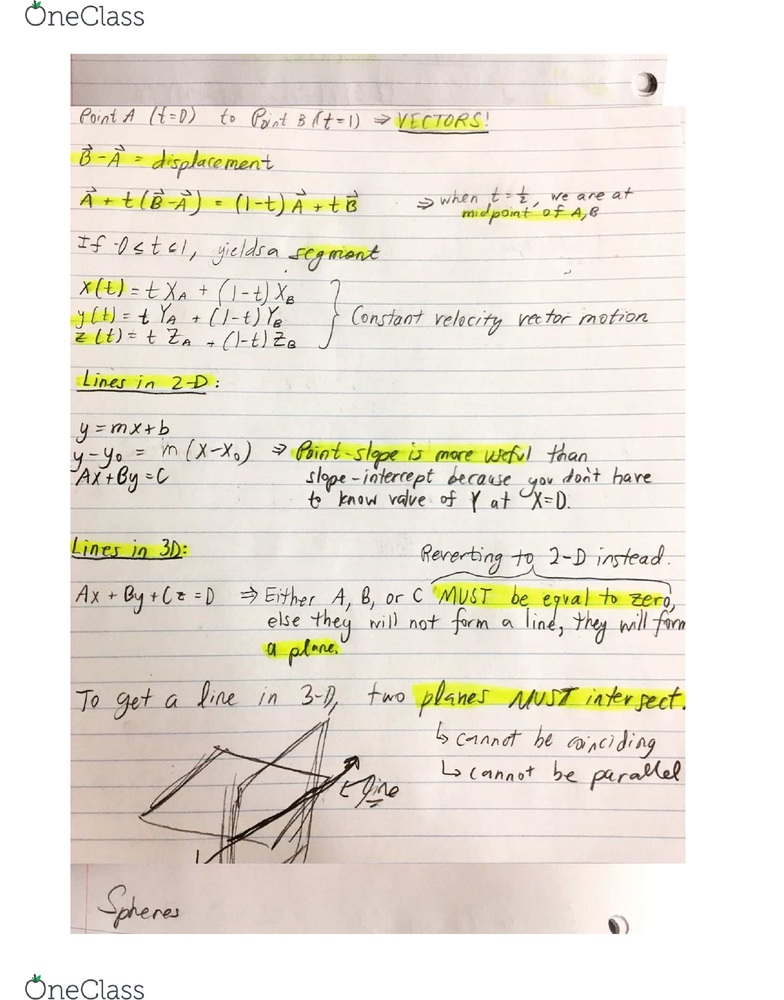 OneClass
Point A (t=0) to Point B (t=1) ⇒ VECTORS!
B⃗ - A⃗ = displacement
A⃗ + t(B⃗-A⃗) = (1-t)A⃗ + tB⃗ ⇒ when t=½, we are at
midpoint of A,B
If 0≤t≤1, yields a segment
x(t) = t X_A + (1-t) X_B
y(t) = t Y_A + (1-t) Y_B } Constant velocity vector motion
z(t) = t Z_A + (1-t) Z_B
Lines in 2-D:
y = mx+b
y-y₀ = m(x-x₀) ⇒ Point-slope is more useful than
Ax+By=C slope-intercept because you don't have
to know value of Y at X=0.
Lines in 3D:
Reverting to 2-D instead.
Ax + By + Cz = D ⇒ Either A, B, or C MUST be equal to zero,
else they will not form a line, they will form
a plane.
To get a line in 3-D, two planes MUST intersect.
↳ cannot be coinciding
↳ cannot be parallel
line
Spheres
OneClass